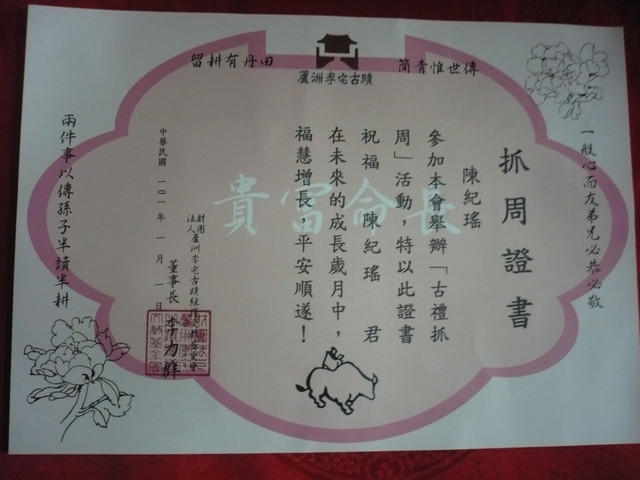 傳世惟青簡
田丹有耕留
蘆洲李宅古蹟
一般心而友弟兄必恭必敬
抓周證書
陳紀瑤
參加本會舉辦「古禮抓
周」活動，特以此證書
祝福 陳紀瑤 君
在未來的成長歲月中，
福慧增長，平安順遂！
長命富貴
財團法人蘆洲李宅古蹟維護
董事長 李力群
中華民國 一〇一年 一月 一日
兩件事以傳孫子半讀半耕